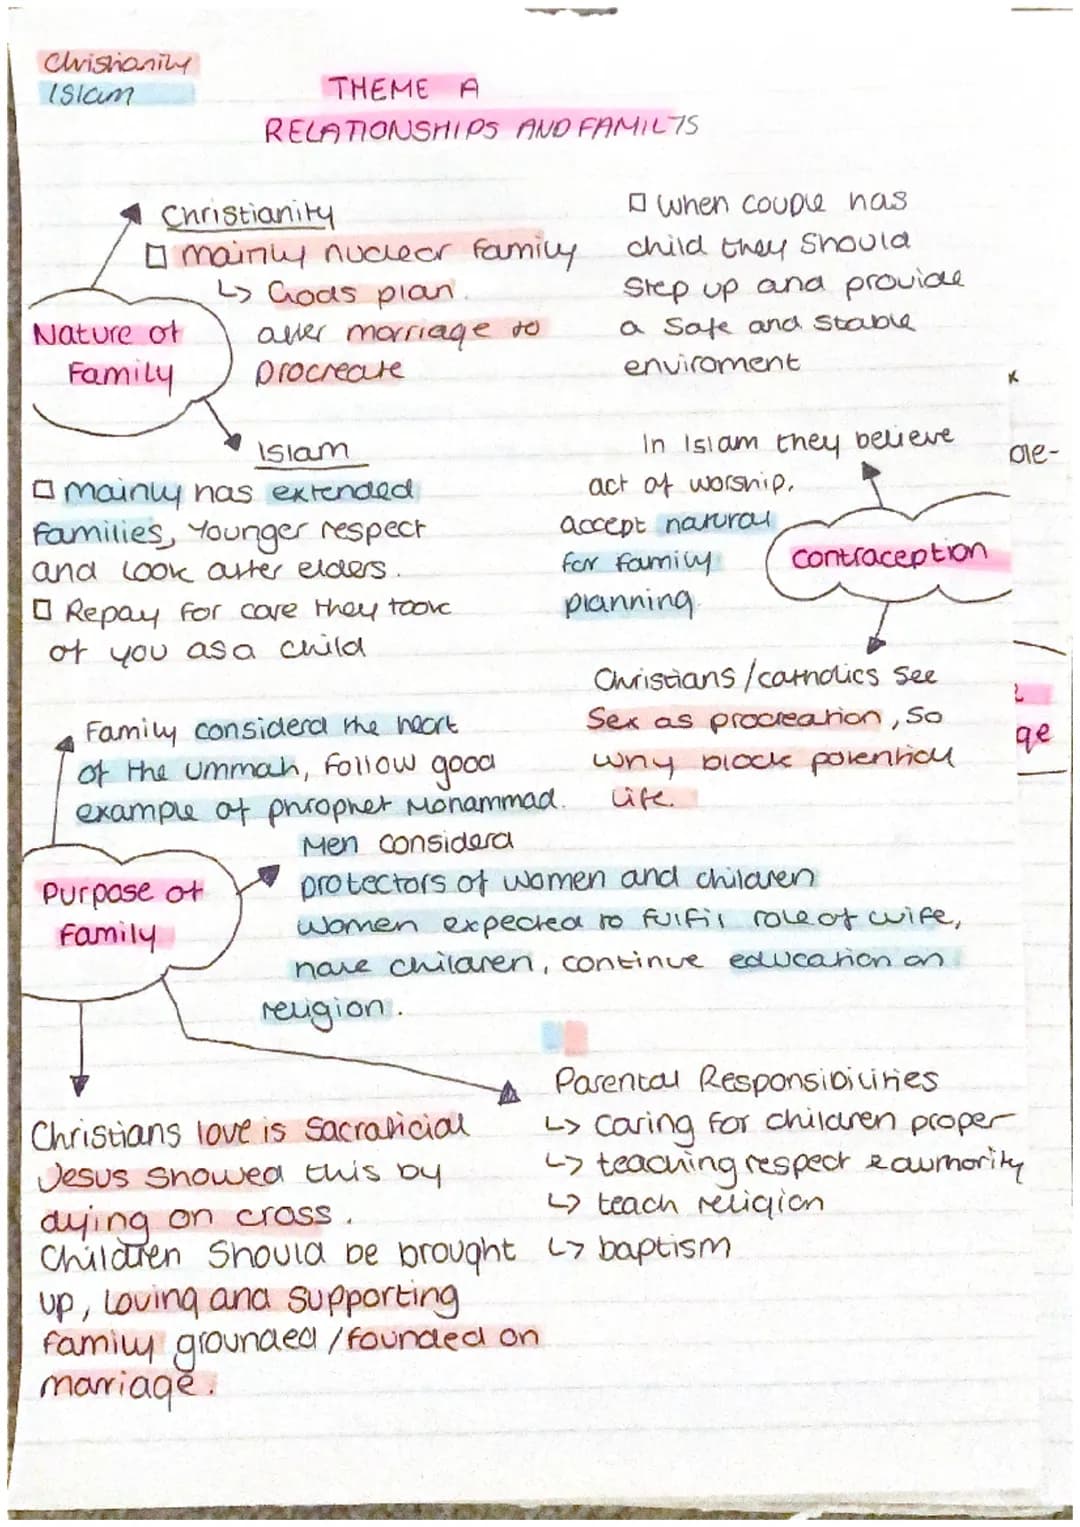 Christianity
Islam
THEME A
RELATIONSHIPS AND FAMILIS
Nature of
Family
Christianity
□ mainly nuclear family
↳ Gods plan.
after marriage to
procreate
□ when couple has
child they should
step up and provide
a safe and stable
enviroment
Islam
□ mainly has extended
families, younger respect
and look after elders.
□ Repay for care they took
of you as a child
In Islam they believe
act of worship.
accept natural
for family
planning.
contraception
Christians/catholics see
sex as procreation, so
why block potential
life.
Purpose of
family
Family considerd the heart
of the ummah, follow good
example of phrophet Mohammad.
Men considerd
protectors of women and children
women expected to fulfil role of wife,
have children, continue education on
religion.
Christians love is sacraficial
Jesus showed this by
dying on cross.
Children should be brought
up, loving and supporting
family grounded/founded on
marriage.
Parental Responsibilities
↳ caring for children proper
↳ teaching respect & authority
↳ teach religion
↳ baptism